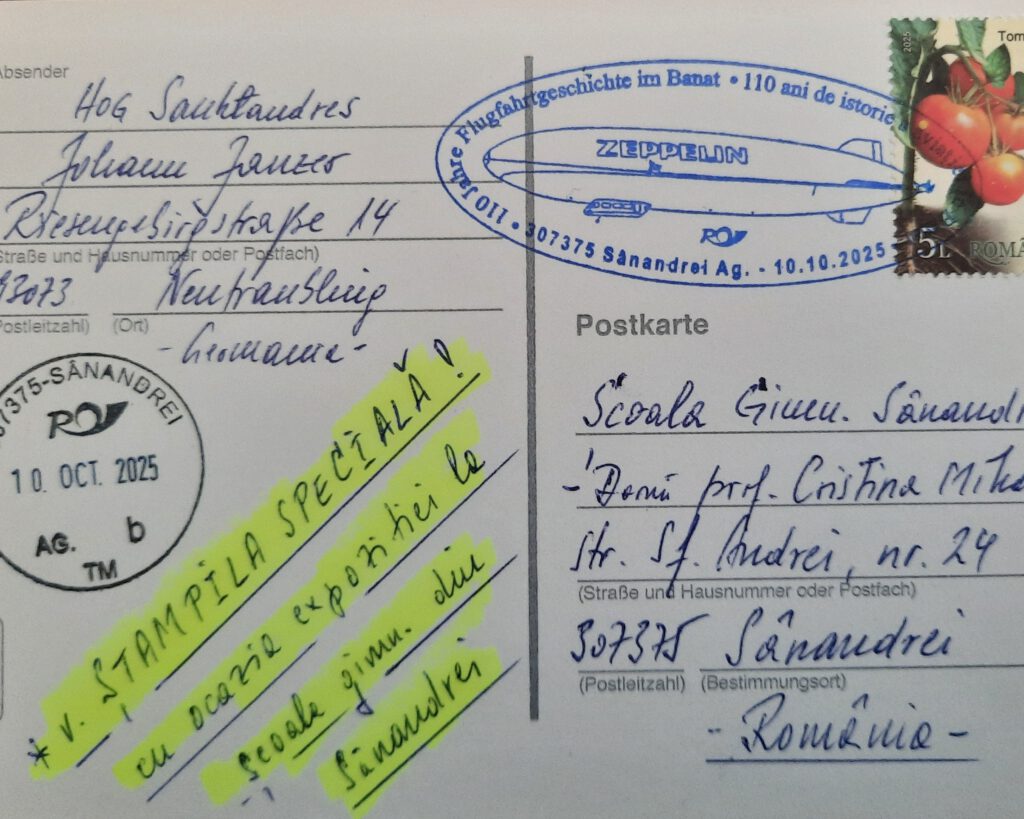 Absender
HOG Sanktandres
Johann Janzer
Riesengebirgstraße 14
Straße und Hausnummer oder Postfach)
93073 Neutraubling
Postleitzahl) (Ort)
- Germania -
307375-SÂNANDREI
10. OCT. 2025
AG. b
TM
* v. ȘTAMPILA SPECIALĂ!
cu ocazia expoziției la
Școala gimn. din
Sânandrei
110 Jahre Flugfahrtgeschichte im Banat • 110 ani de istorie
ZEPPELIN
307375 Sânandrei Ag. - 10.10.2025
2025
Tom
5L ROMÂ
Postkarte
Școala Gimn. Sânandr
- Domn prof. Cristina
str. Sf. Andrei, nr. 24
(Straße und Hausnummer oder Postfach)
307375 Sânandrei
(Postleitzahl) (Bestimmungsort)
- România -